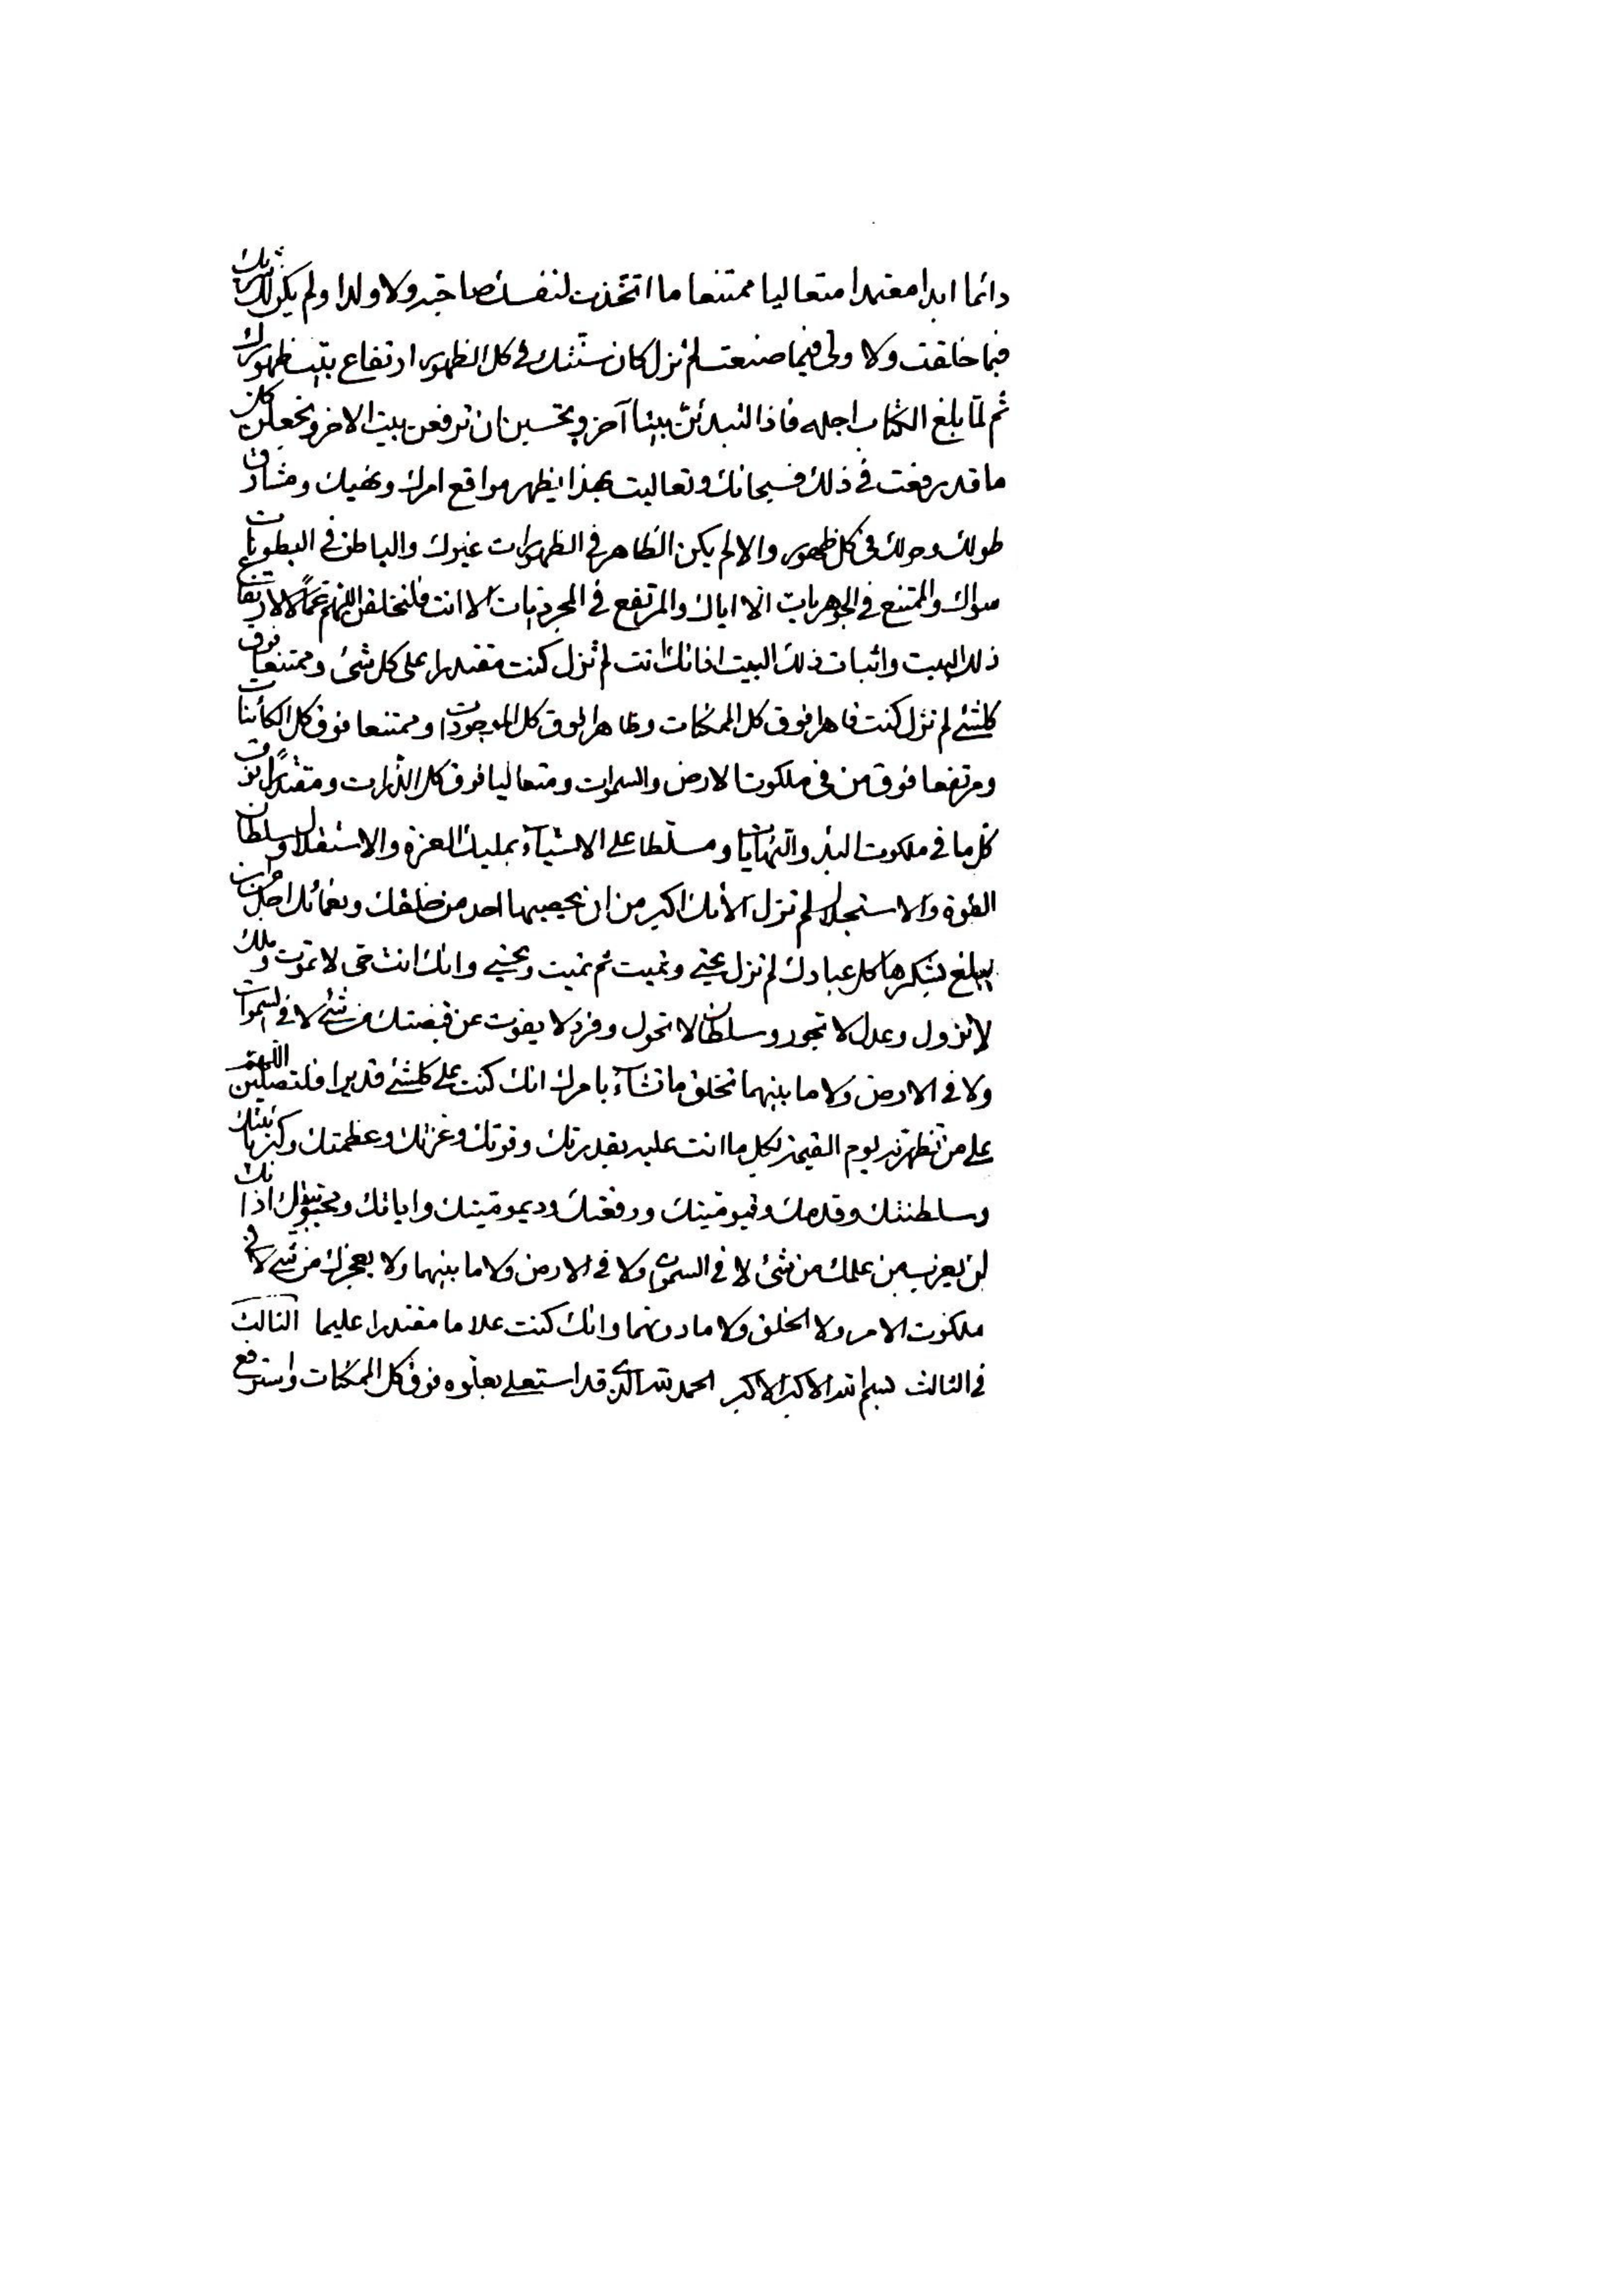 دائما ابدا مقتدرا متعاليا ممتنعا ما اتخذت لنفسك صاحبة ولا ولدا ولم يكن لك شريك
فيما خلقت ولا ولى فيما صنعت لم تزل كان سنتك فى كل الظهور ارتفاع بيت ظهورك
ثم لما بلغ الكتاب اجله فاذا لتبدئن بيتا آخر وتحسبن ان ترفعن بيت الاخر وتجعلن كل
ما قد رفعت فى ذلك فسبحانك وتعاليت بهذا يظهر مواقع امرك ونهيك ومشارق
طولك وحولك فى كل ظهور والا لم يكن الظاهر فى الظهورات غيرك والباطن فى البطونات
سواك والممتنع فى الجوهريات الا اياك والمرتفع فى المجرديات الا انت فلتخلقن اللهم لارتفاع
ذلك البيت واثبات ذلك البيت اذ انك انت لم تزل كنت مقتدرا على كل شئ وممتنعا فوق
كلشئ لم تزل كنت قاهرا فوق كل الممكنات وظاهرا فوق كل الموجودات وممتنعا فوق كل الكائنات
ومرتفعا فوق من فى ملكوت الارض والسموات ومتعاليا فوق كل الذرات ومقتدرا فوق
كل ما فى ملكوت البدء والنهايات ومسلطا على الاشياء بمليك العزة والاستقلال وسلطان
القوة والاستجلال لم تزل الائك اكبر من ان يحصيها احد من خلقك ونعمائك اجل من ان
يبلغ بشكرها كل عبادك لم تزل تحيى وتميت ثم تميت وتحيى وانك انت حى لا تموت وملك
لا تزول وعدل لا تجور وسلطان لا تحول وفرد لا يفوت عن قبضتك من شئ لا فى السموات
ولا فى الارض ولا ما بينهما تخلق ما تشاء بامرك انك كنت على كلشئ قديرا فلتصلين اللهم
على من تظهرنه يوم القيمة بكل ما انت عليه بقدرتك وقوتك وعزتك وعظمتك وكبريائيتك
وسلطنتك وقدمك وقيوميتك ورفعتك وديموميتك واياتك اذا
لن يعزب من علمك من شئ لا فى السموات ولا فى الارض ولا ما بينهما ولا يعجزك من شئ لا فى
ملكوت الامر ولا الخلق ولا ما دونهما وانك كنت علاما مقتدرا عليما الثالث
فى الثالث بسم الله الاكبر الاكبر الحمد لله الذى قد استعلى بعلوه فوق كل الممكنات واسترفع